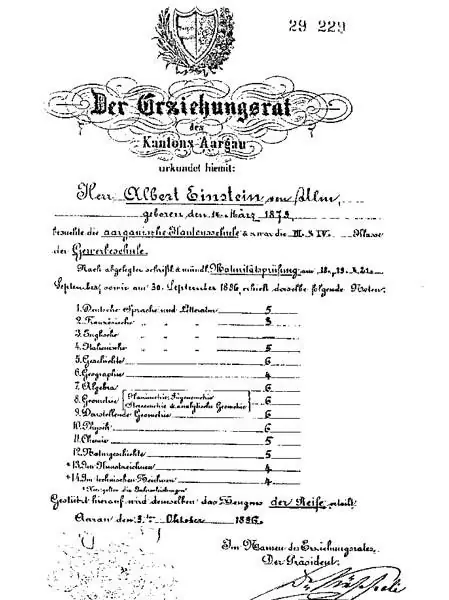 29 229
Der Erziehungsrat
des
Kantons Aargau
urkundet hiermit:
Herr Albert Einstein von Ulm,
geboren den 14. März 1879,
besuchte die aargauische Kantonsschule & zwar die III. & IV. Klasse
der Gewerbeschule.
Nach abgelegter schriftl. & mündl. Maturitätsprüfung am 18., 19. & 21.
September, sowie am 30. September 1896, erhielt derselbe folgende Noten:
1. Deutsche Sprache und Litteratur 5
2. Französische „ „ „ 3
3. Englische „ „ „
4. Italienische „ „ „ 5
5. Geschichte 6
6. Geographie 4
7. Algebra 6
8. Geometrie { Planimetrie, Trigonometrie Stereometrie & analytische Geometrie } 6
9. Darstellende Geometrie 6
10. Physik 6
11. Chemie 5
12. Naturgeschichte 5
*13. Im Kunstzeichnen 4
*14. Im technischen Zeichnen 4
* Hier gelten die Jahresleistungen.
Gestützt hierauf wird demselben das Zeugnis der Reife erteilt.
Aarau den 3ten Oktober 1896.
Im Namen des Erziehungsrates,
Der Präsident: